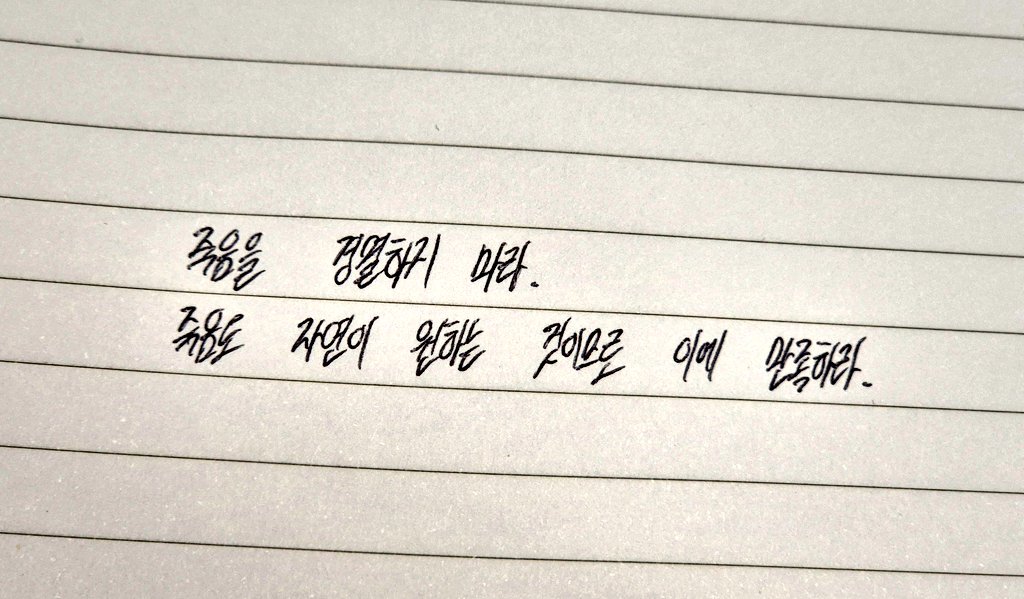 죽음을 경멸하지 마라.
죽음도 자연이 원하는 것이므로 이에 만족하라.